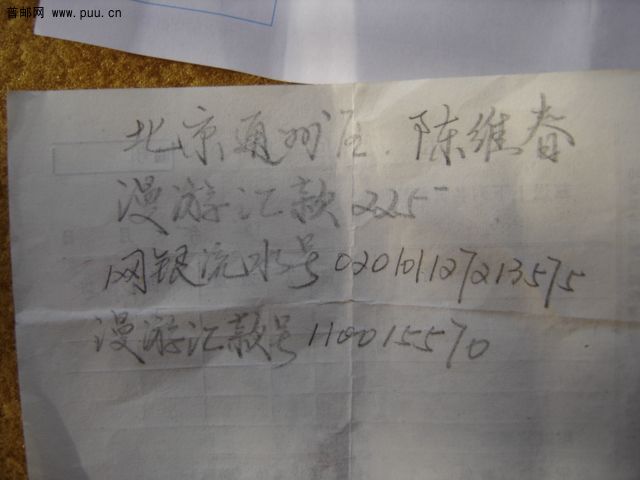 普邮网 www.puu.cn
北京通州区.陈维春
漫游汇款225-
网银流水号020101127213575
漫游汇款号110015570